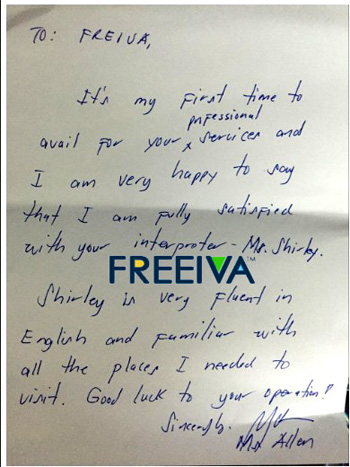 TO: FREIVA,
It's my first time to
professional
avail for your x services and
I am very happy to say
that I am fully satisfied
with your interpreter - Ms. Shirley.
FREEIVA™
Shirley is very fluent in
English and familiar with
all the places I needed to
visit. Good luck to your operation!
Sincerely,
Allen